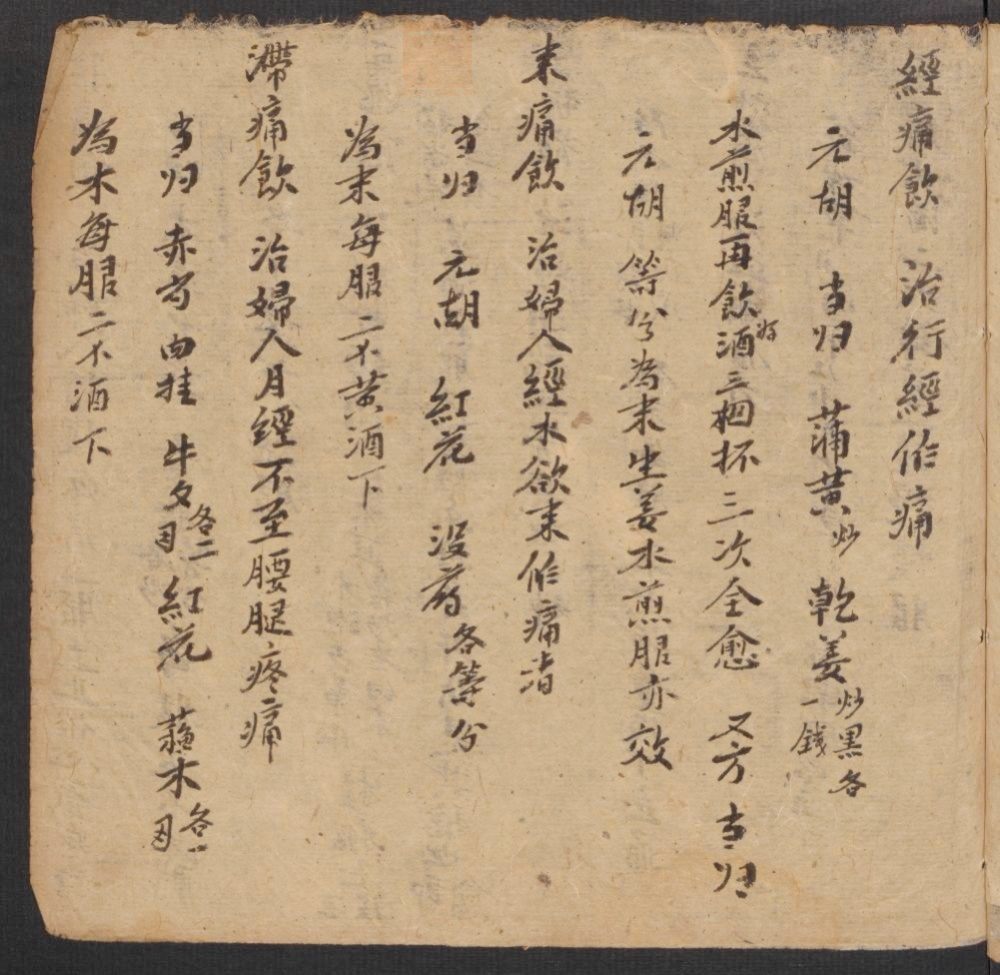 經痛飲 治行經作痛
元胡 当归 蒲黄炒 乾姜炒黑各一錢
水煎服再飲酒好三四杯三次全愈 又方 当归
元胡 等分為末生姜水煎服亦效
来痛飲 治婦人經水欲来作痛者
当归 元胡 紅花 没药各等分
為末每服二不黄酒下
滯痛飲 治婦人月經不至腰腿疼痛
当归 赤芍 肉桂 牛夕各二 紅花 蘓木各一
為木每服二不酒下